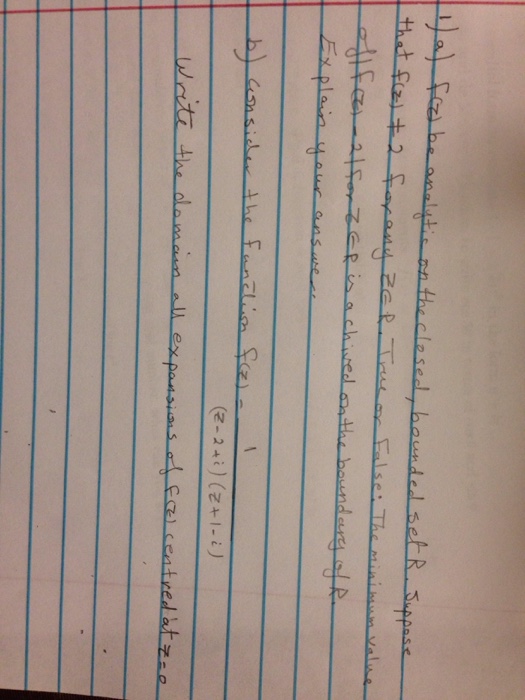 1) a) f(z) be analytic on the closed, bounded set R. Suppose
that f(z) ≠ 2 for any z∈R. True or False: The minimum value
of |f(z) - 2| for z∈R is achived on the boundary of R.
Explain your answer.
b) consider the function f(z) = 1 / (z-2+i)(z+1-i)
Write the domain all expansions of f(z) centred at z=0